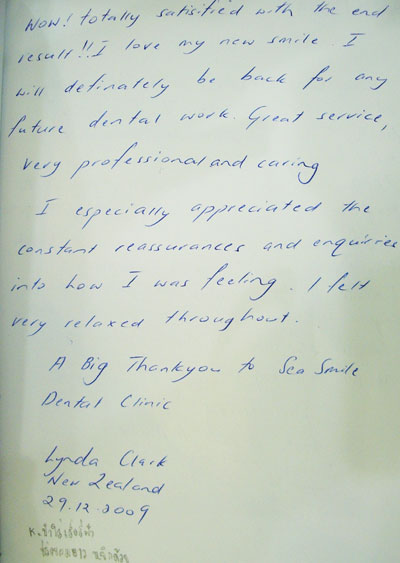 Wow! totally satisified with the end
result!! I love my new smile. I
will definately be back for any
future dental work. Great service,
very professional and caring
I especially appreciated the
constant reassurances and enquiries
into how I was feeling. I felt
very relaxed throughout.
A Big Thankyou to Sea Smile
Dental Clinic
Lynda Clark
New Zealand
29.12.2009